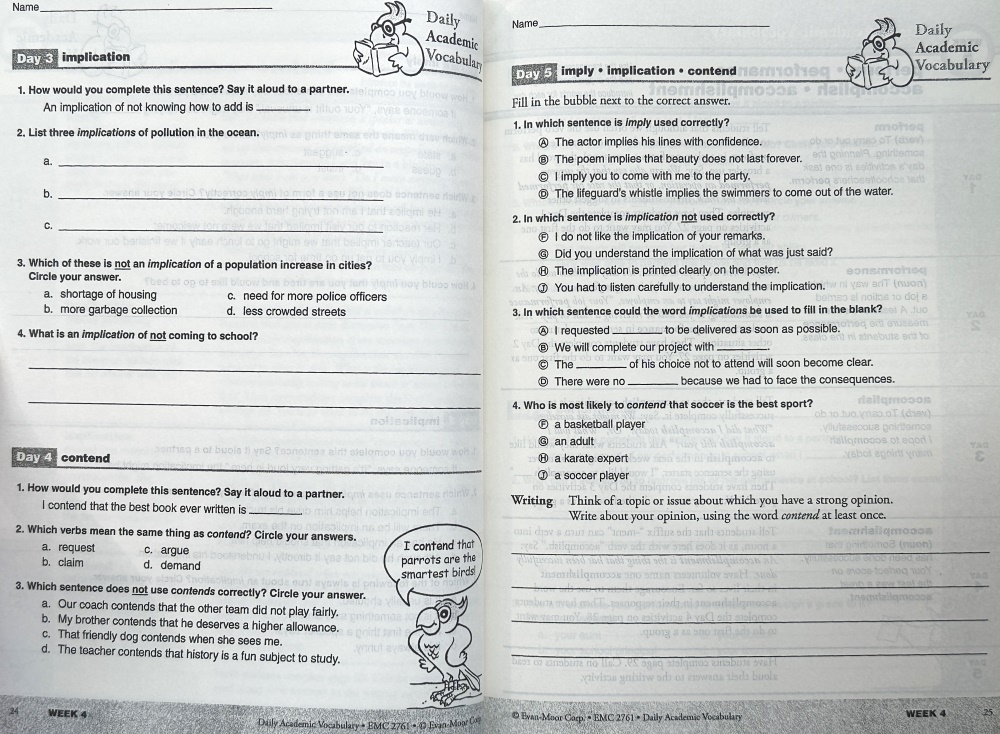 Name
Daily
Academic
Vocabulary
Day 3 implication
1. How would you complete this sentence? Say it aloud to a partner.
An implication of not knowing how to add is ________.
2. List three implications of pollution in the ocean.
a.
b.
c.
3. Which of these is not an implication of a population increase in cities?
Circle your answer.
a. shortage of housing c. need for more police officers
b. more garbage collection d. less crowded streets
4. What is an implication of not coming to school?
Day 4 contend
1. How would you complete this sentence? Say it aloud to a partner.
I contend that the best book ever written is ________.
2. Which verbs mean the same thing as contend? Circle your answers.
a. request c. argue
b. claim d. demand
3. Which sentence does not use contends correctly? Circle your answer.
a. Our coach contends that the other team did not play fairly.
b. My brother contends that he deserves a higher allowance.
c. That friendly dog contends when she sees me.
d. The teacher contends that history is a fun subject to study.
I contend that
parrots are the
smartest birds!
24 WEEK 4 Daily Academic Vocabulary • EMC 2761 • © Evan-Moor
Name
Daily
Academic
Vocabulary
Day 5 imply • implication • contend
Fill in the bubble next to the correct answer.
1. In which sentence is imply used correctly?
Ⓐ The actor implies his lines with confidence.
Ⓑ The poem implies that beauty does not last forever.
Ⓒ I imply you to come with me to the party.
Ⓓ The lifeguard's whistle implies the swimmers to come out of the water.
2. In which sentence is implication not used correctly?
Ⓕ I do not like the implication of your remarks.
Ⓖ Did you understand the implication of what was just said?
Ⓗ The implication is printed clearly on the poster.
Ⓙ You had to listen carefully to understand the implication.
3. In which sentence could the word implications be used to fill in the blank?
Ⓐ I requested ________ to be delivered as soon as possible.
Ⓑ We will complete our project with ________.
Ⓒ The ________ of his choice not to attend will soon become clear.
Ⓓ There were no ________ because we had to face the consequences.
4. Who is most likely to contend that soccer is the best sport?
Ⓕ a basketball player
Ⓖ an adult
Ⓗ a karate expert
Ⓙ a soccer player
Writing Think of a topic or issue about which you have a strong opinion.
Write about your opinion, using the word contend at least once.
© Evan-Moor Corp. • EMC 2761 • Daily Academic Vocabulary WEEK 4 25